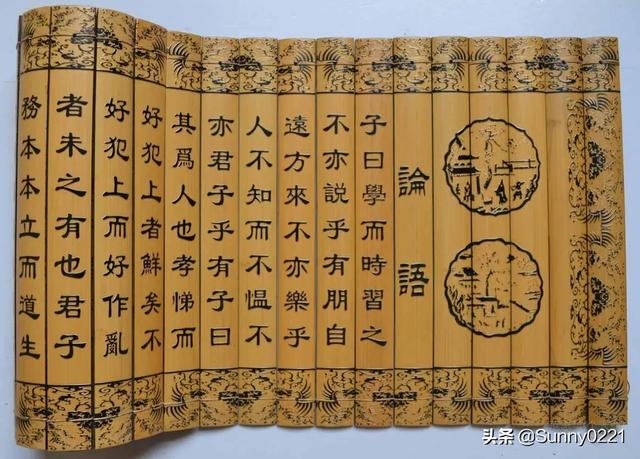 論語
子曰學而時習之
不亦説乎有朋自
遠方來不亦樂乎
人不知而不愠不
亦君子乎有子曰
其爲人也孝悌而
好犯上者鮮矣不
好犯上而好作亂
者未之有也君子
務本本立而道生
头条 @Sunny0221